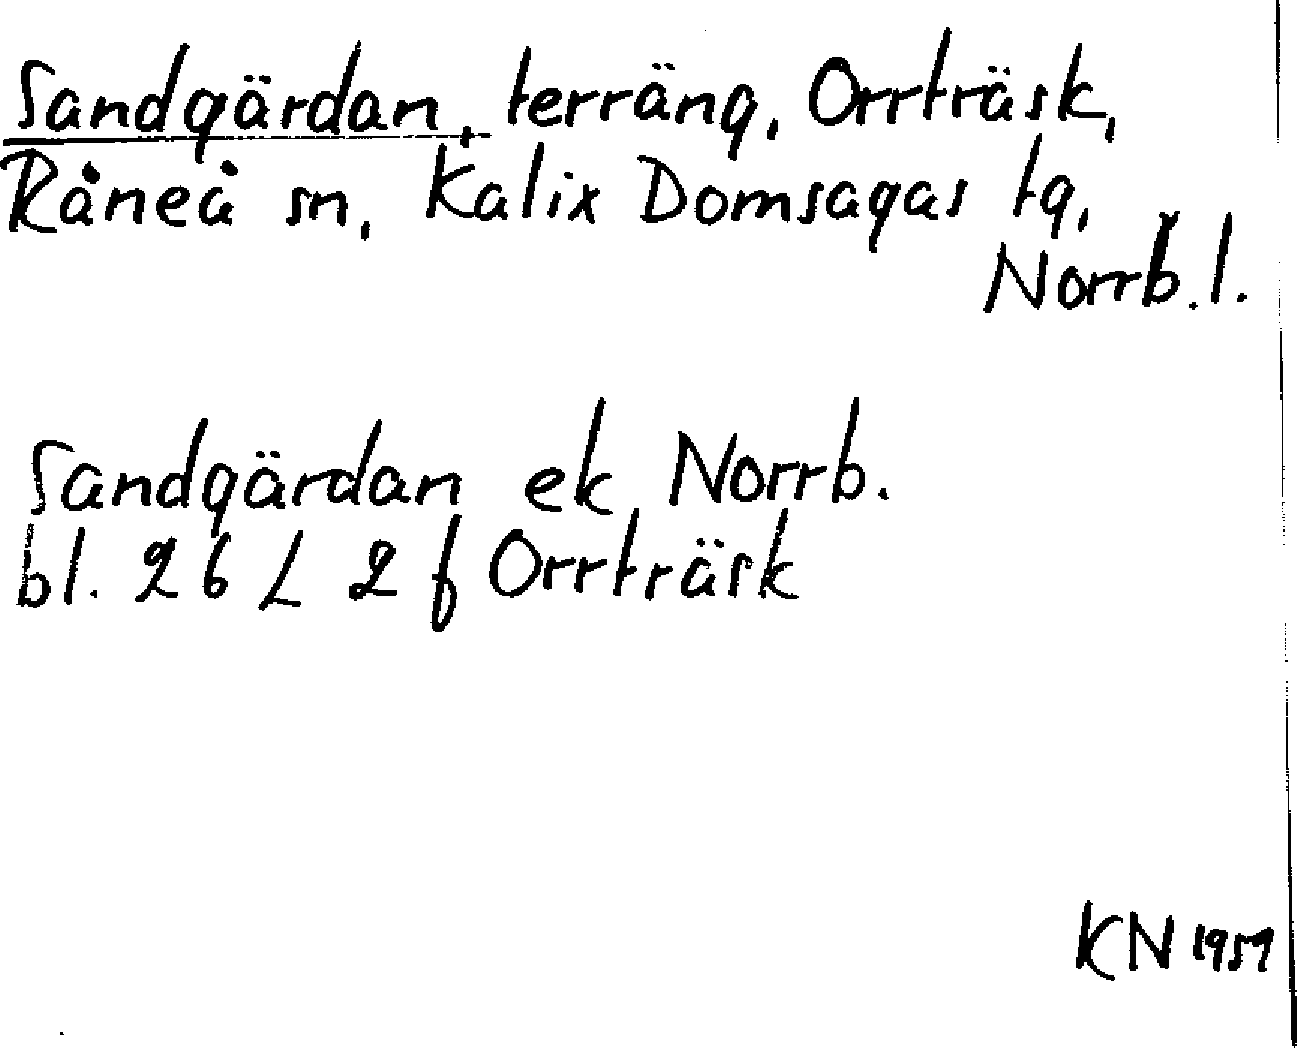 Sandgärdan, terräng, Orrträsk,
Råneå sn, Kalix Domsagas tg,
Norrb. l.
Sandgärdan ek Norrb.
bl. 26 L 2 f Orrträsk
KN